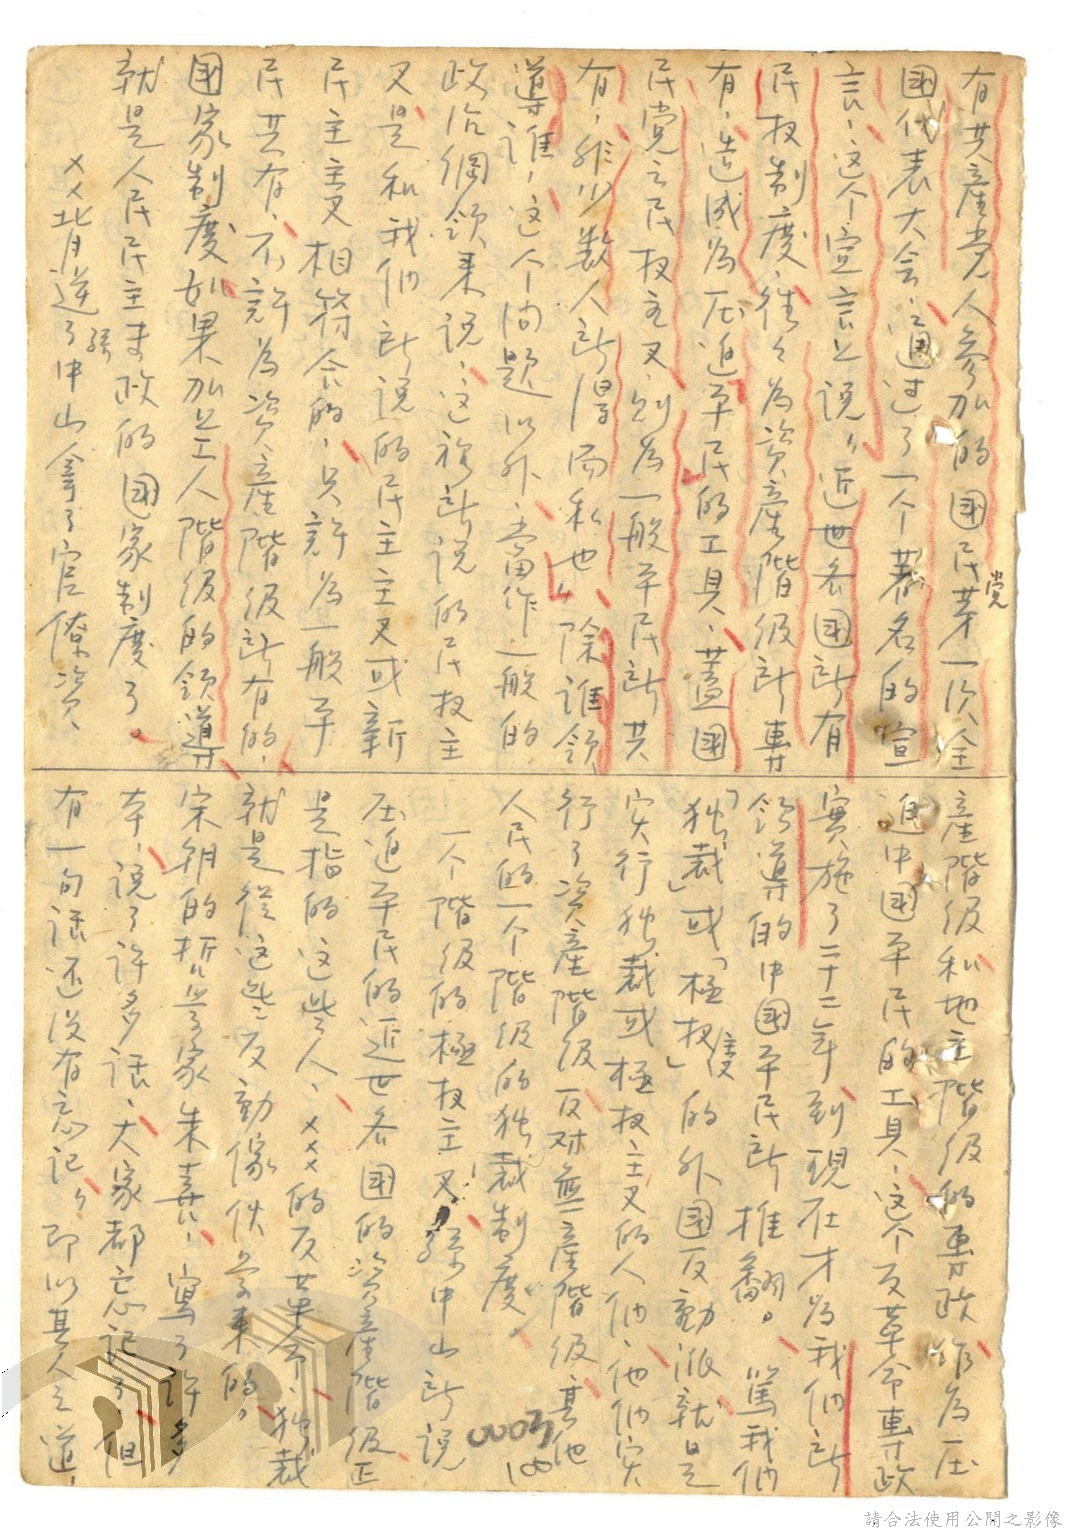 有共產党人参加的國民党第一次全
國代表大会、通过了一个著名的宣
言、这个宣言上說、“近世各國所有
民权制度、往々為資產階級所專
有、造成為压迫平民的工具、蓋國
民党之民权主义、則為一般平民所共
有、非少数人所得而私也”除誰領
導誰、这个问題以外、當作一般的
政治綱領来說、这裡所說的民权主
义是和我們所說的民主主义或新
民主主义相符合的、只許為一般平
民共有、不許為資產階級所有的、
國家制度如果加上工人階級的領導
就是人民民主专政的國家制度了。
××背逆了孫中山、拿了官僚資、
產階級和地主階級的專政作為压
迫中國平民的工具、这个反革命專政
實施了二十二年、到現在才為我們所
領導的中國平民所推翻。罵我們
「独裁」或「極权」的外國反動派就是
实行独裁或極权主义的人們、他們实
行了資產階級反对無產階級、其他
人民的一个階級的独裁制度、
一个階級的極权主义、孫中山所說
压迫平民的近世各國的資產階級正
是指的这些人、×××的反革命、独裁
就是從这些反動傢伙学来的。
宋朝的哲学家朱熹、寫了许多
本、說了许多话、大家都忘記了、但
有一句话还没有忘記、即以其人之道、
0003
100
請合法使用公開之影像